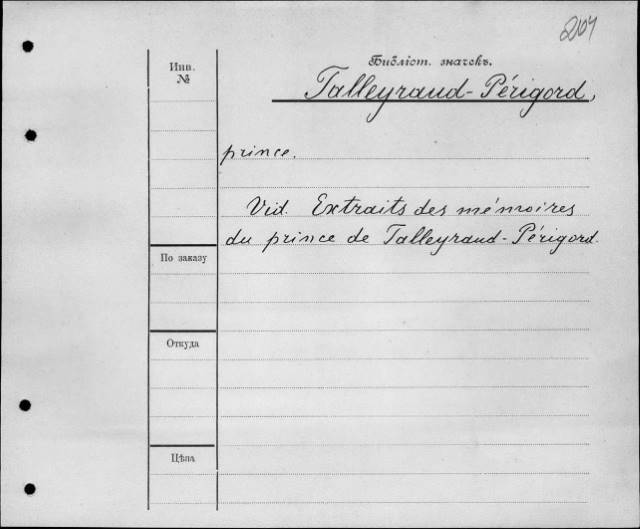 204
Библіот. значекъ.
Инв.
№
Talleyrand-Périgord,
prince.
Vid. Extraits des mémoires
du prince de Talleyrand-Périgord.
По заказу
Откуда
Цѣна